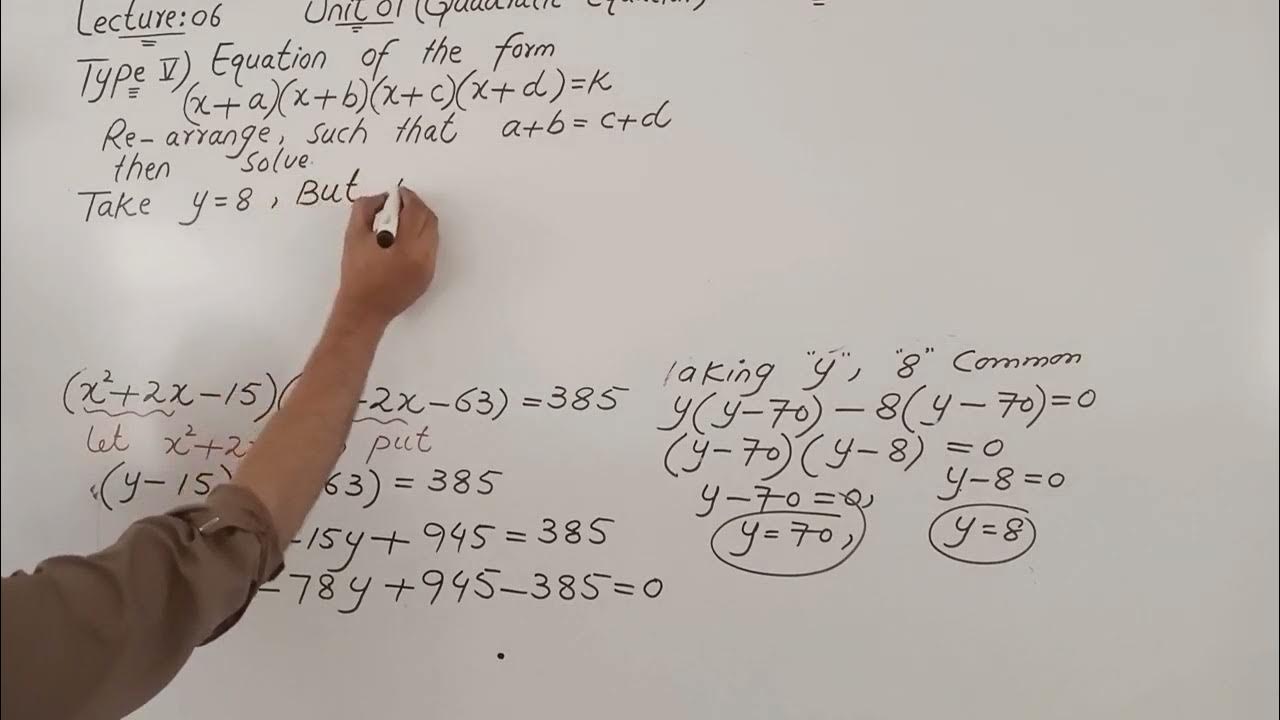 Lecture: 06 Unit 01 (Quadratic Equation)
Type V) Equation of the form
(x+a)(x+b)(x+c)(x+d)=K
Re-arrange, such that a+b=c+d
then solve.
Take y=8, But
(x²+2x-15)( -2x-63)=385
let x²+2 , put
(y-15) 63)=385
-15y+945=385
-78y+945-385=0
Taking "y", "8" Common
y(y-70)-8(y-70)=0
(y-70)(y-8)=0
y-70=0, y-8=0
y=70, y=8